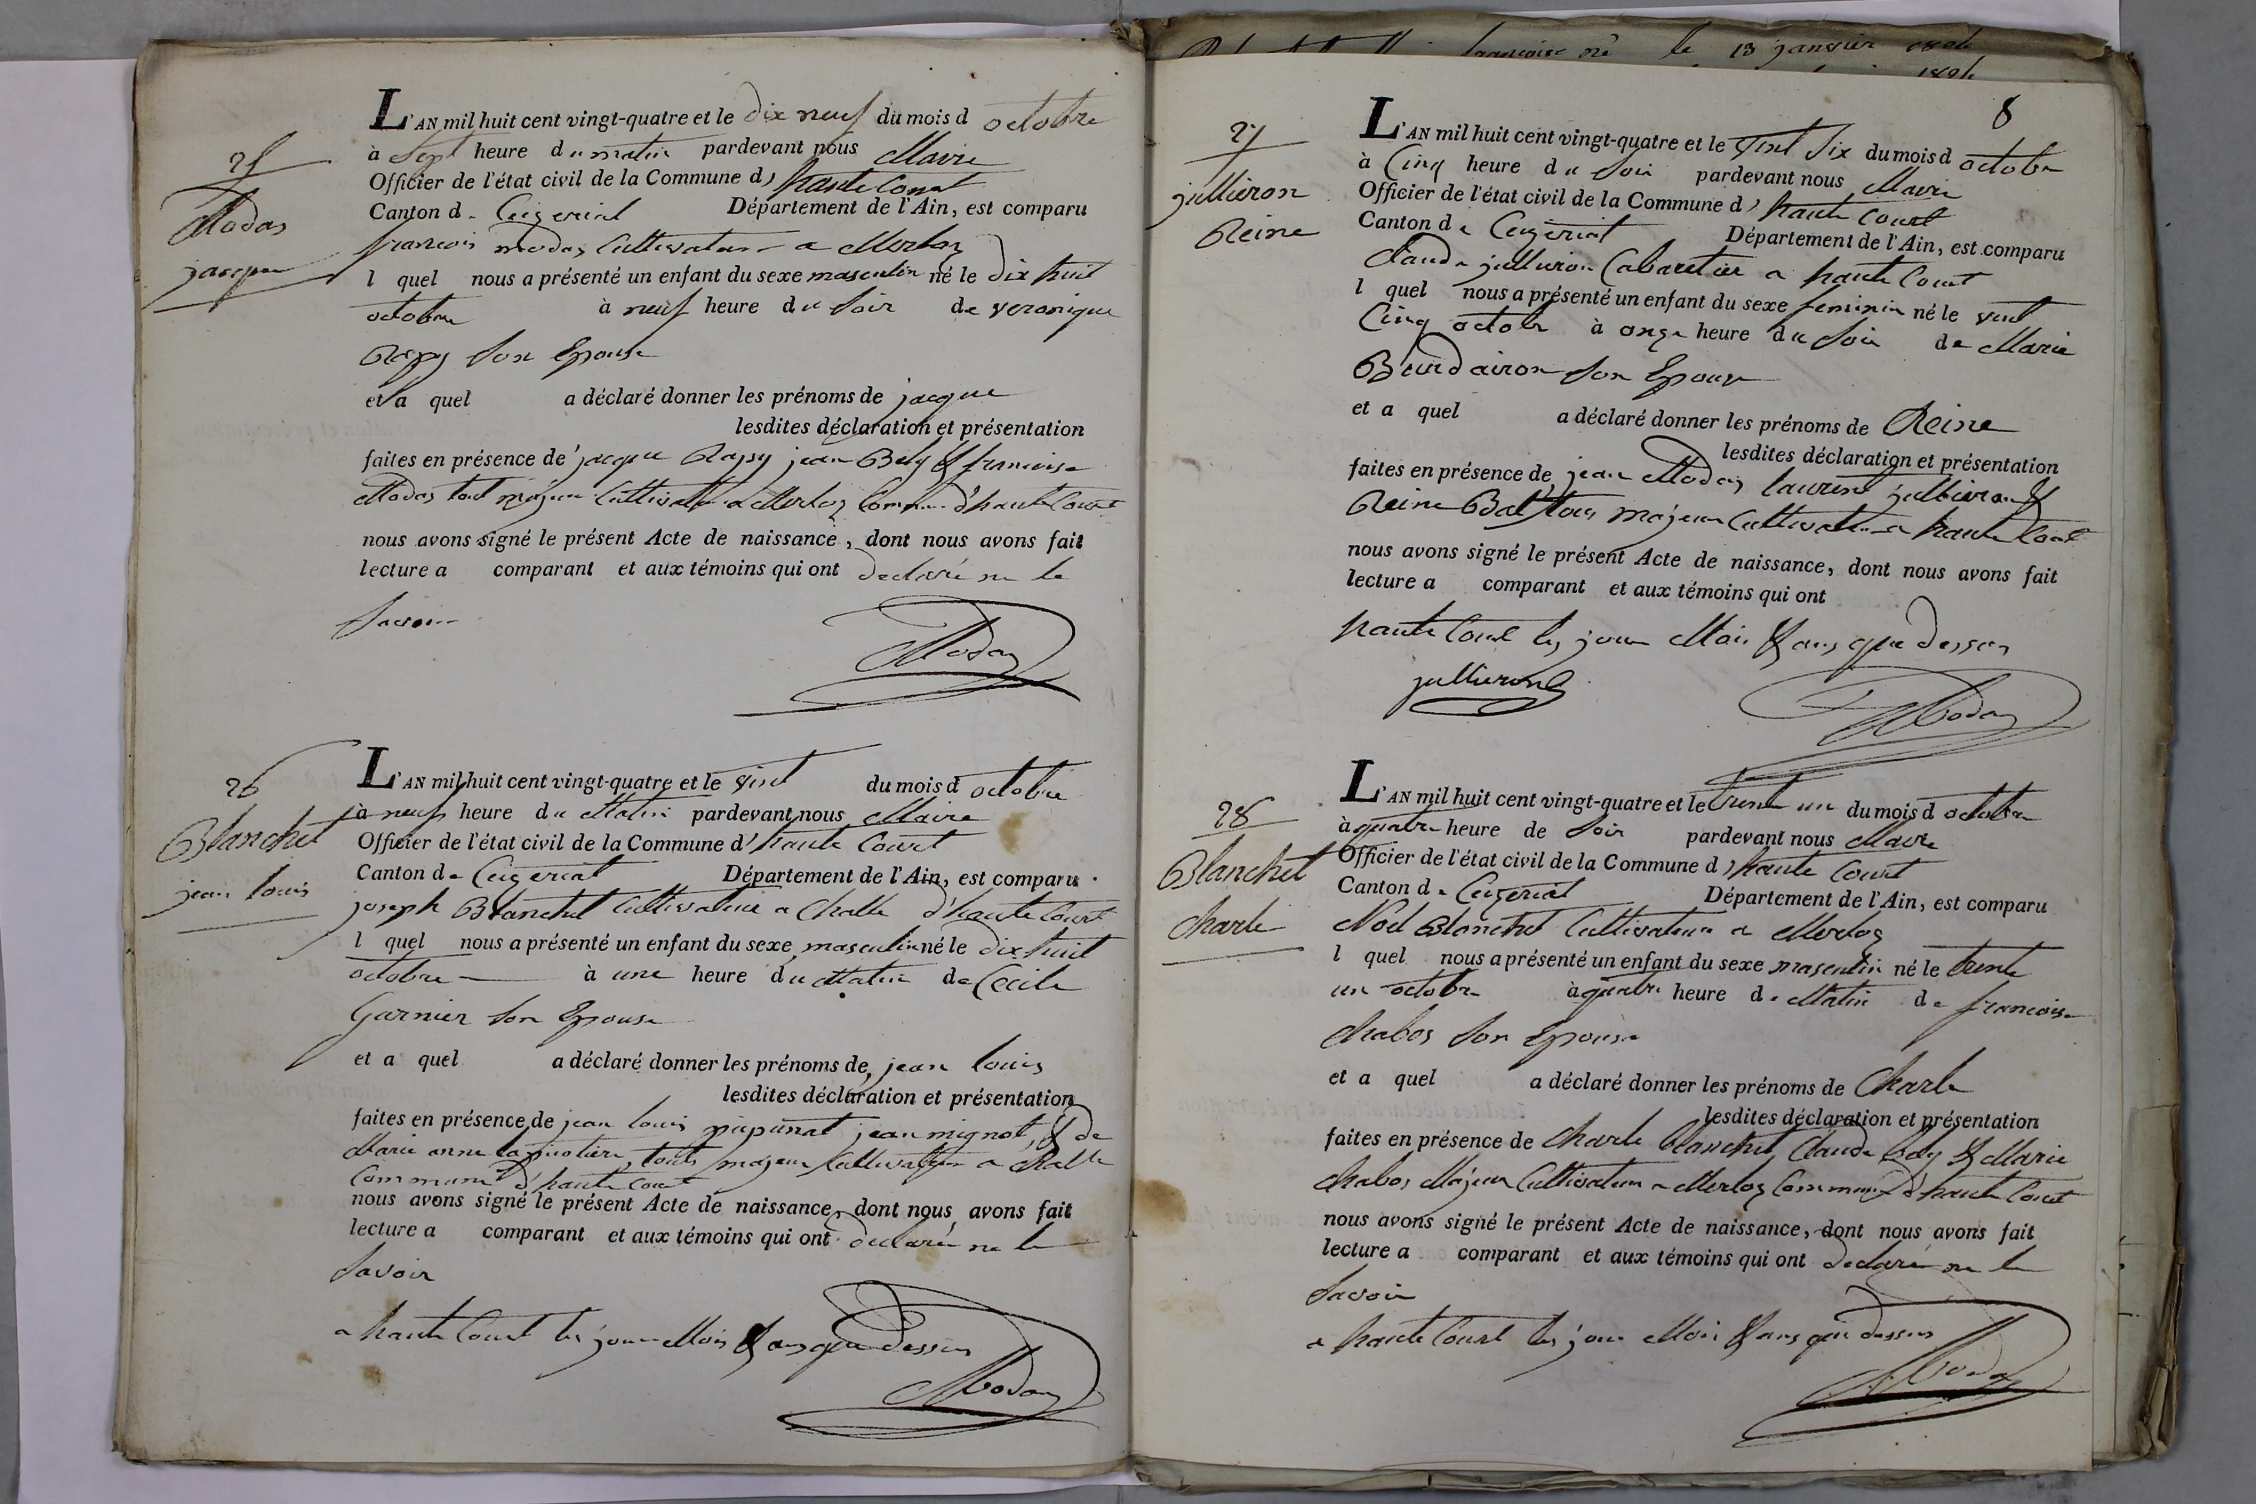 25
Modas
jacque
L'AN mil huit cent vingt-quatre et le dix neuf du mois d octobre
à Sept heure du matin pardevant nous Maire
Officier de l'état civil de la Commune d' haute Court
Canton de Ceizeriat Département de l'Ain, est comparu
francois modas Cultivateur a Merloz
l quel nous a présenté un enfant du sexe masculin né le dix huit
octobre à neuf heure du Soir de veronique
Rapy Son Epouse
et a quel a déclaré donner les prénoms de jacque
lesdites déclaration et présentation
faites en présence de jacque Rapy jean Bely & francoise
Modas tout majeur Cultivateur a Merloz Commune d'haute Court
nous avons signé le présent Acte de naissance, dont nous avons fait
lecture a comparant et aux témoins qui ont declaré ne le
Savoir
Modas
26
Blanchet
jean louis
L'AN mil huit cent vingt-quatre et le vint du mois d octobre
à neuf heure du Matin pardevant nous Maire
Officier de l'état civil de la Commune d' haute Court
Canton de Ceizeriat Département de l'Ain, est comparu
joseph Blanchet Cultivateur a Challe d'haute Court
l quel nous a présenté un enfant du sexe masculin né le dix huit
octobre à une heure du Matin de Cecile
Garnier Son Epouse
et a quel a déclaré donner les prénoms de jean louis
lesdites déclaration et présentation
faites en présence de jean louis jean mignot, & de
Marie anne touts majeur Cultivateur a Challe
Commune d'haute Court
nous avons signé le présent Acte de naissance, dont nous avons fait
lecture a comparant et aux témoins qui ont declaré ne le
Savoir
a haute Court les jour Mois & ans que dessus
Modas
francoise né le 13 janvier
8
27
jullieron
Reine
L'AN mil huit cent vingt-quatre et le vint Six du mois d octobre
à Cinq heure du Soir pardevant nous Maire
Officier de l'état civil de la Commune d' haute Court
Canton de Ceizeriat Département de l'Ain, est comparu
Claude jullieron Cabaretier a haute Court
l quel nous a présenté un enfant du sexe feminin né le vint
Cinq octobre à onze heure du Soir de Marie
Bourdairon Son Epouse
et a quel a déclaré donner les prénoms de Reine
lesdites déclaration et présentation
faites en présence de jean Modas laurent jullieron &
Reine tous majeur Cultivateur a haute Court
nous avons signé le présent Acte de naissance, dont nous avons fait
lecture a comparant et aux témoins qui ont
haute Court les jour Mois & ans que dessus
jullieron
Modas
28
Blanchet
Charle
L'AN mil huit cent vingt-quatre et le trente un du mois d octobre
à quatre heure de Soir pardevant nous Maire
Officier de l'état civil de la Commune d' haute Court
Canton de Ceizeriat Département de l'Ain, est comparu
Noël Blanchet Cultivateur a Merloz
l quel nous a présenté un enfant du sexe masculin né le trente
un octobre à quatre heure de Matin de francoise
Chabos Son Epouse
et a quel a déclaré donner les prénoms de Charle
lesdites déclaration et présentation
faites en présence de Charle Blanchet Claude Bely & Marie
Chabos Majeur Cultivateur a Merloz Commune d'haute Court
nous avons signé le présent Acte de naissance, dont nous avons fait
lecture a comparant et aux témoins qui ont declaré ne le
Savoir
a haute Court les jour Mois & ans que dessus
Modas